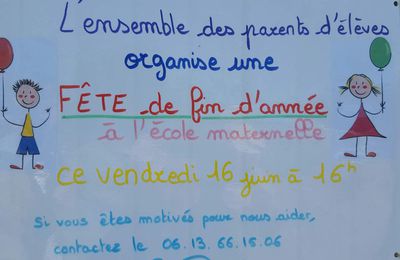 L'ensemble des parents d'élèves
organise une
FÊTE de fin d'année
à l'école maternelle
ce vendredi 16 juin à 16h
Si vous êtes motivés pour nous aider,
contactez le 06.13.66.18.06